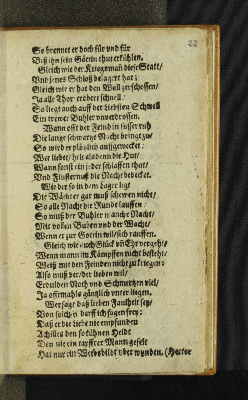 22
So brennet er doch für und für
Biß ihn sein Göttin thut erkühlen.
Gleich wie der Kriegsman diese Statt/
Und jenes Schloß belägert hat;
Gleich wie er hat den Wall zerschossen/
Ja alle Thor erobert schnell:
So liegt auch auff der liebsten Schwell
Ein trewer Buhler unverdrossen.
Wann offt der Feind in süsser ruh
Die lange schwartze Nacht bringt zu/
So wird er plötzlich auffgewecket:
Wer liebet/ helt alsdenn die Hut/
Wann sonst ein jeder schlaffen thut/
Und Finsternuß die Nacht bedecket.
Wie der so in dem Lager ligt
Die Wächter gar muß schewen nicht/
So alle Nacht die Runde lauffen:
So muß der Buhler manche Nacht/
Mit vollen Buben und der Wacht/
Wenn er zur Göttin wil/ sich rauffen.
Gleich wie auch Glück und Ehr vergeht/
Wenn man im Kämpffen nicht besteht/
Weiß mit den Feinden nicht zu kriegen:
Also muß der/ der lieben wil/
Erdulden Noth und Schmertzen viel/
Ja offtmahls gäntzlich unter liegen.
Wer sagt daß lieben Faulheit sey/
Von solchen darff ich sagen frey:
Daß er die Liebe nie empfunden
Achilles den so kühnen Heldt
Den wie ein tapffrer Mann gefelt
Hat nur ein Weibsbild überwunden. (Hector